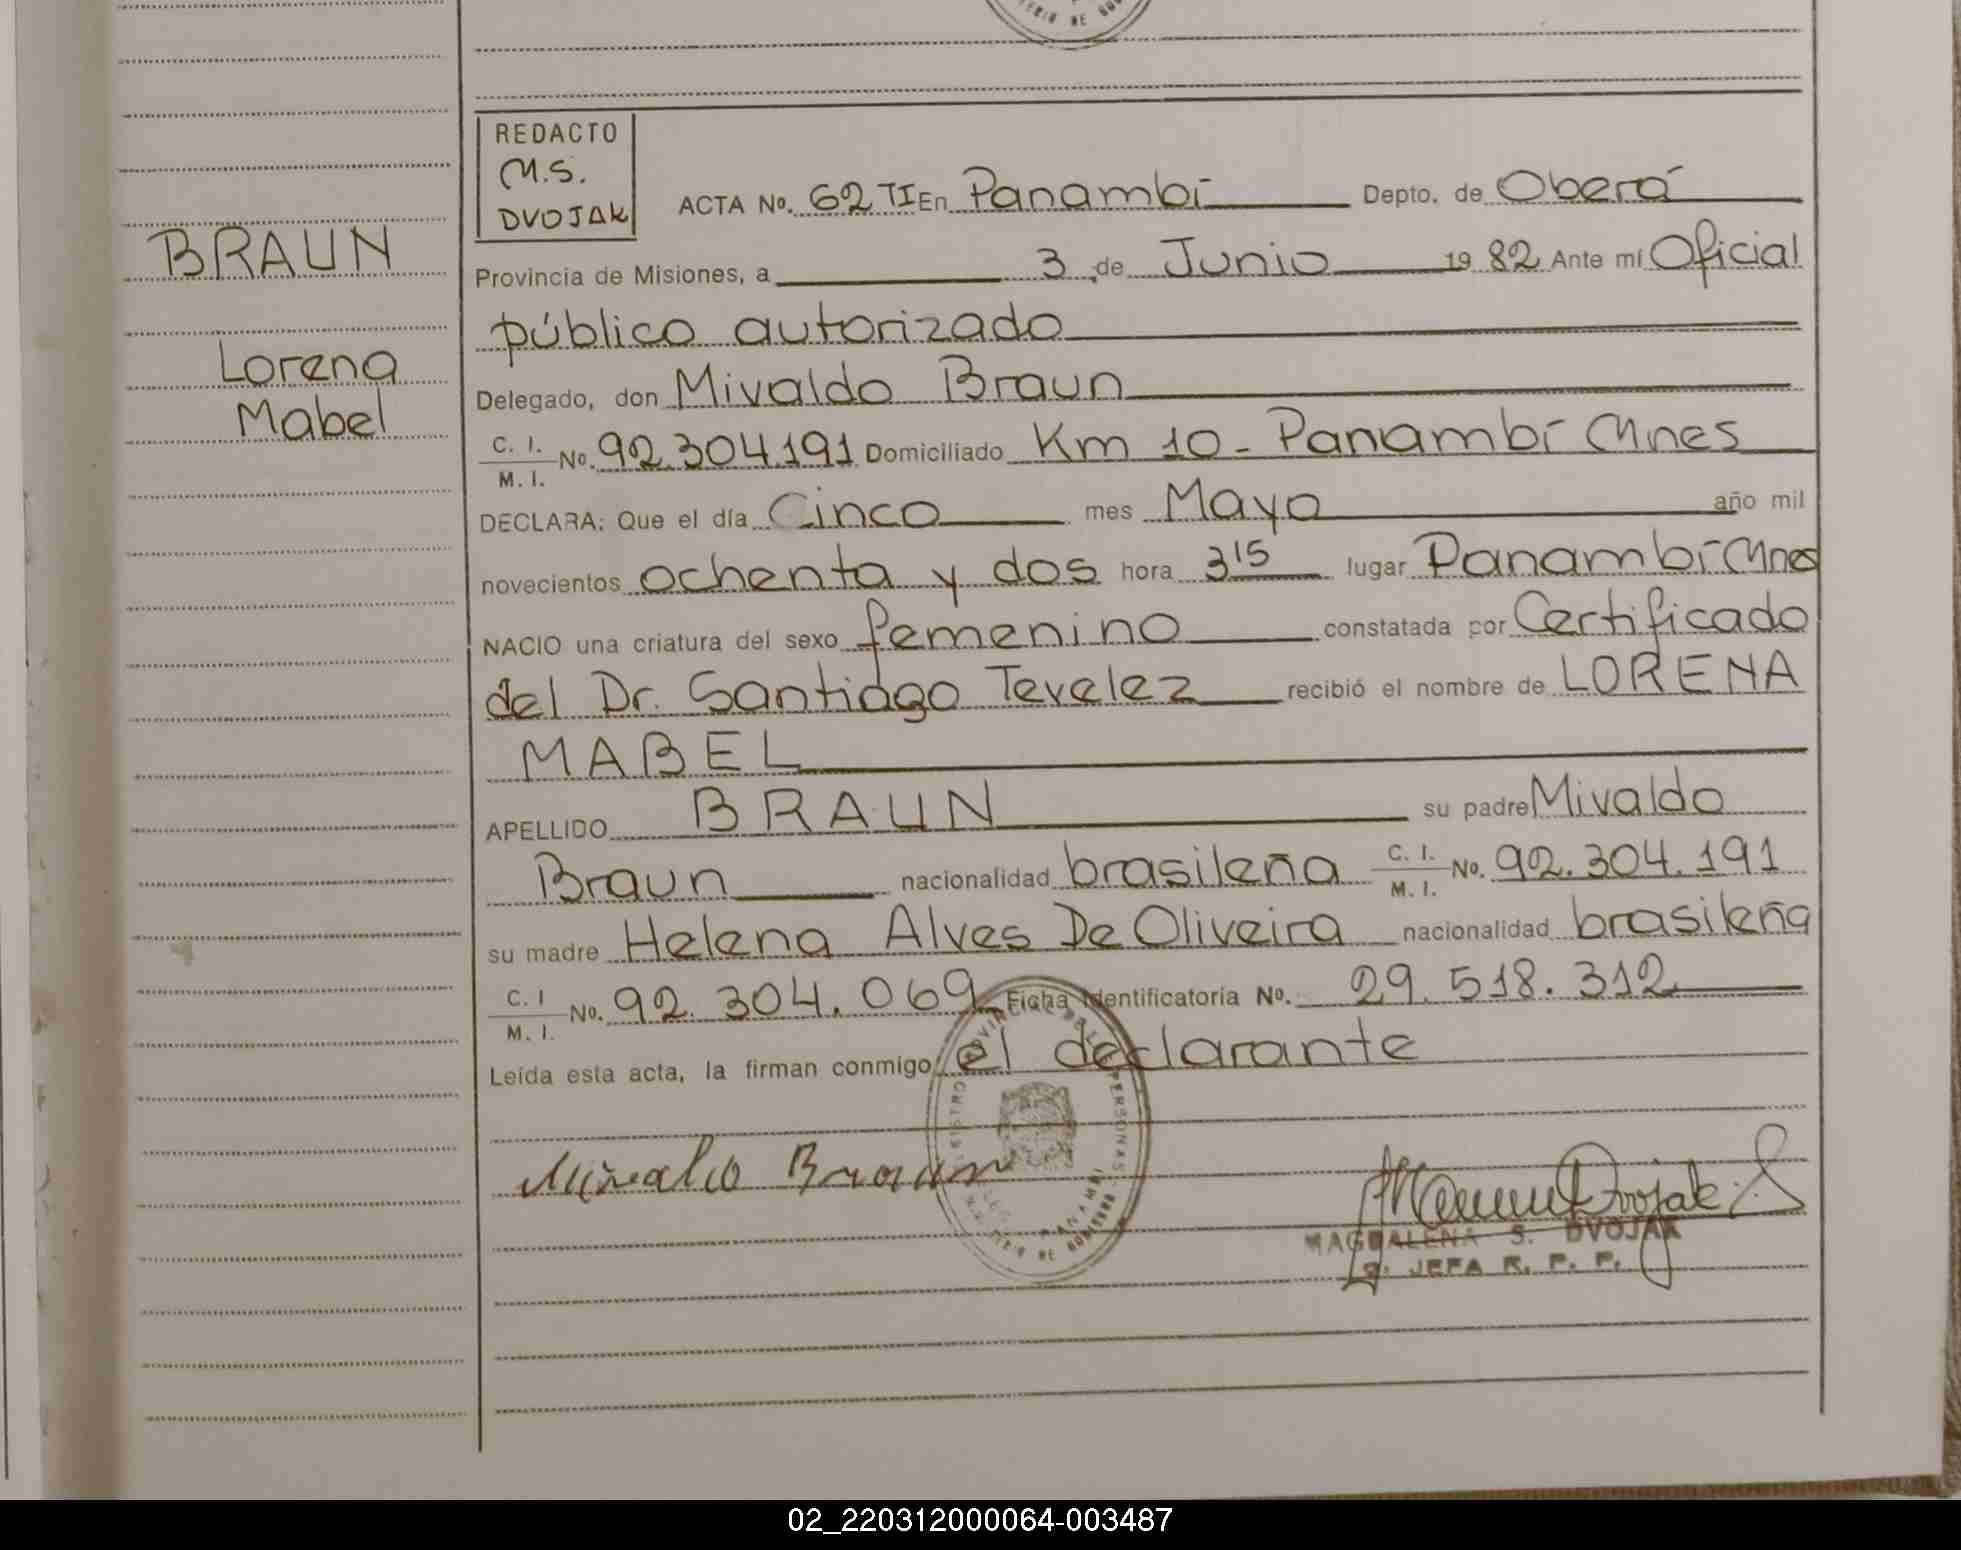 RIO DE GOB
REDACTO
M.S.
DVOJAK
ACTA No. 62 TI En Panambí Depto. de Oberá
BRAUN
Provincia de Misiones, a 3 de Junio 1982 Ante mí Oficial
público autorizado
Lorena
Mabel
Delegado, don Mivaldo Braun
C. I. M. I. No. 92.304.191 Domiciliado Km 10 - Panambí Mnes
DECLARA: Que el día Cinco mes Mayo año mil
novecientos ochenta y dos hora 3 15 lugar Panambí Mnes
NACIO una criatura del sexo femenino constatada por Certificado
del Dr. Santiago Tevelez recibió el nombre de LORENA
MABEL
APELLIDO BRAUN su padre Mivaldo
Braun nacionalidad brasileña C. I. M. I. No. 92.304.191
su madre Helena Alves De Oliveira nacionalidad brasileña
C. I M. I. No. 92.304.069 Ficha Identificatoria No. 29.518.312
Leída esta acta, la firman conmigo el declarante
Mivaldo Braun
Dvojak
MAGDALENA S. DVOJAK
JEFA R. P. P.
02_220312000064-003487